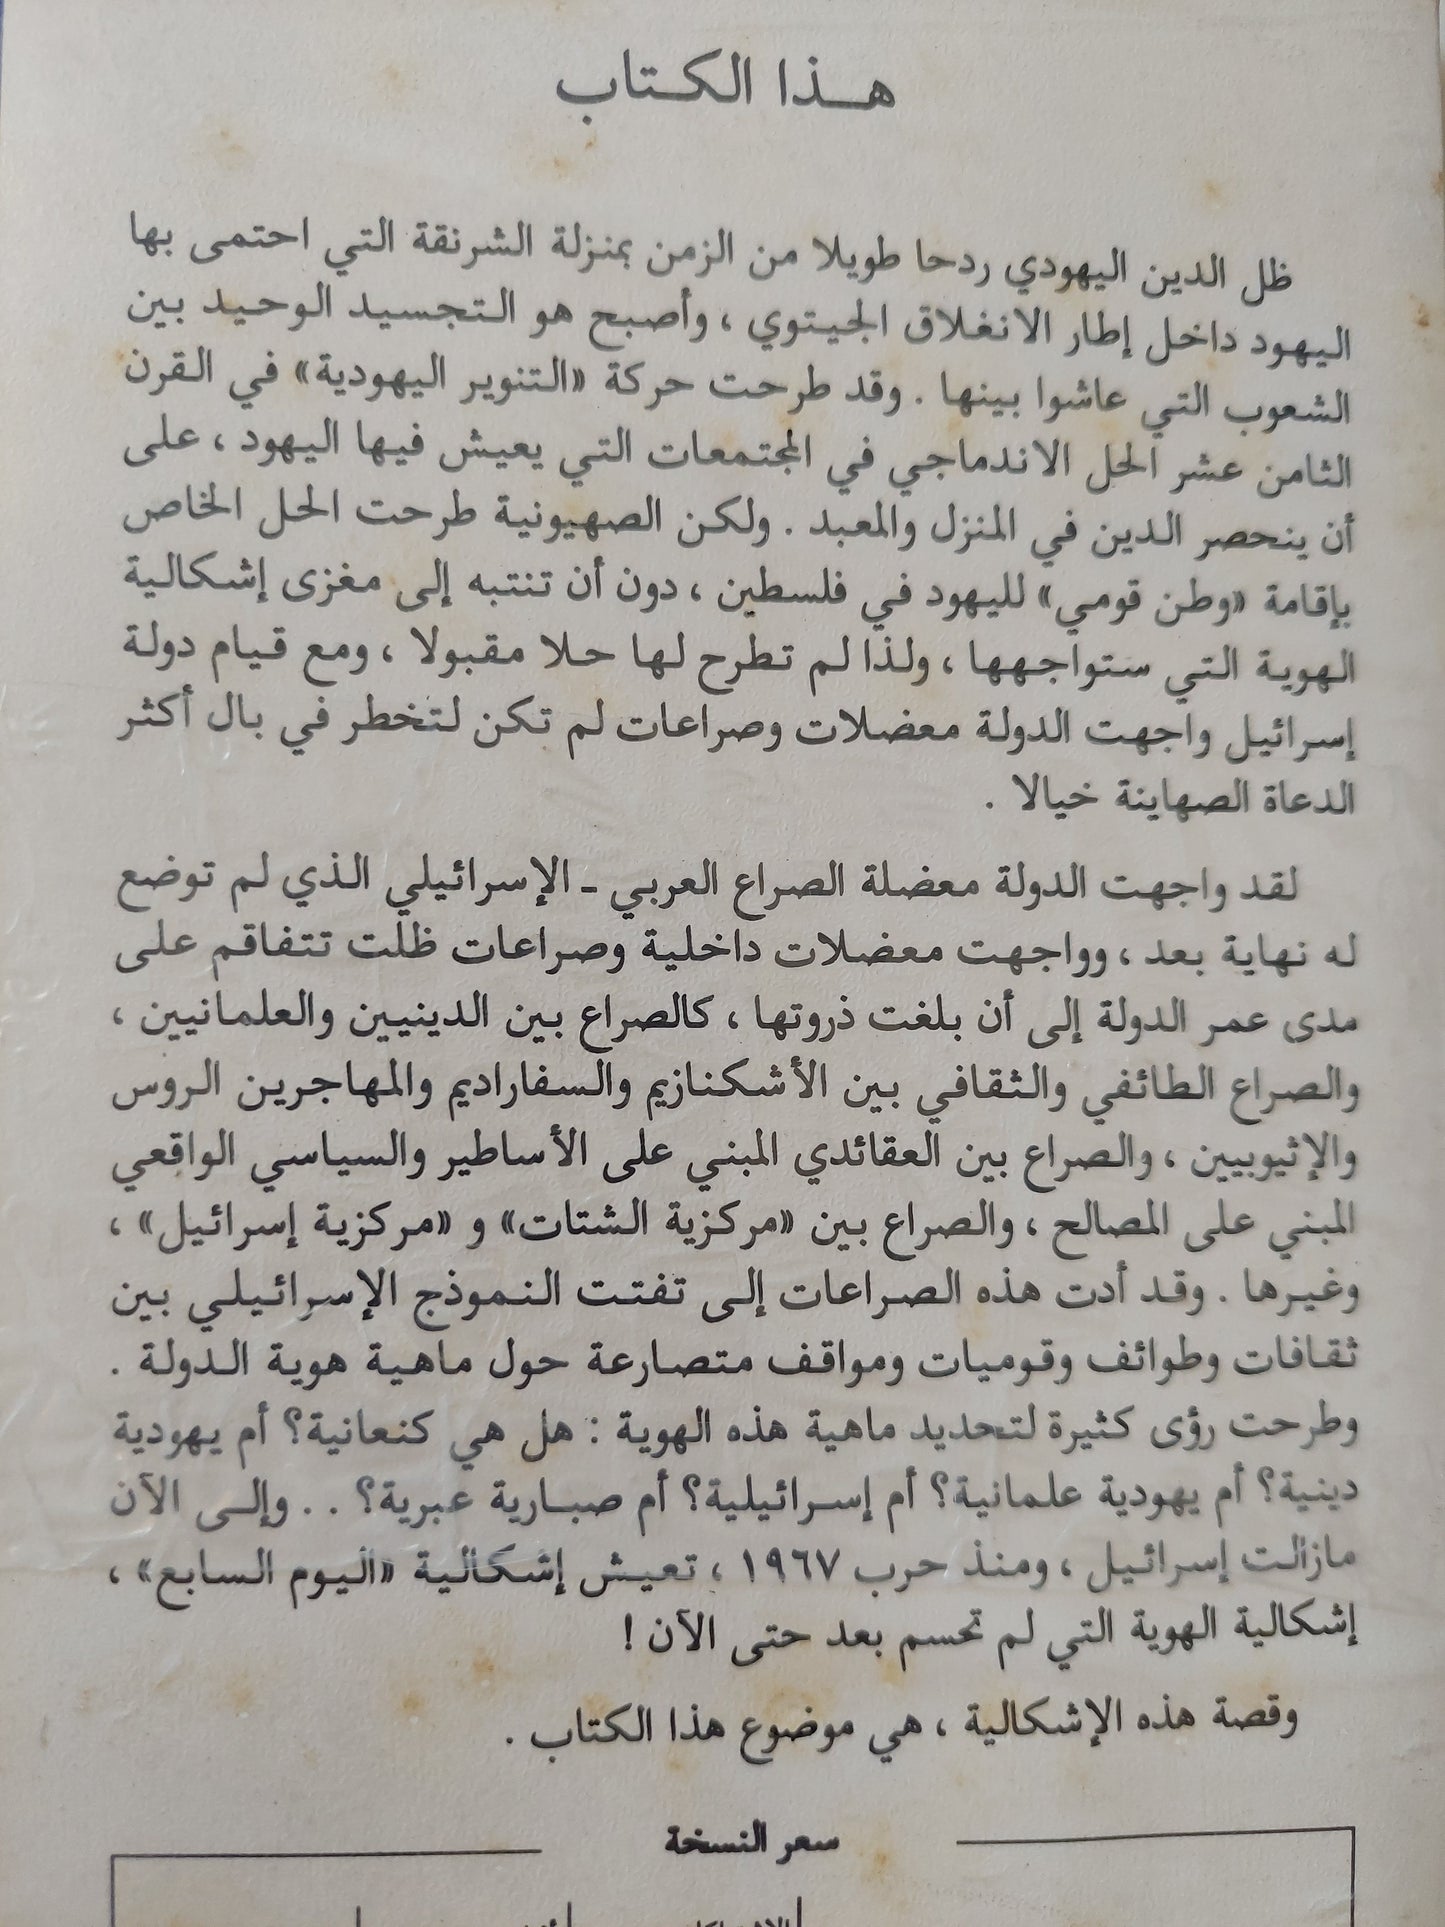 هـذا الكـتاب
ظل الدين اليهودي ردحا طويلا من الزمن بمنزلة الشرنقة التي احتمى بها
اليهود داخل إطار الانغلاق الجيتوي ، وأصبح هو التجسيد الوحيد بين
الشعوب التي عاشوا بينها . وقد طرحت حركة «التنوير اليهودية» في القرن
الثامن عشر الحل الاندماجي في المجتمعات التي يعيش فيها اليهود ، على
أن ينحصر الدين في المنزل والمعبد . ولكن الصهيونية طرحت الحل الخاص
بإقامة «وطن قومي» لليهود في فلسطين ، دون أن تنتبه إلى مغزى إشكالية
الهوية التي ستواجهها ، ولذا لم تطرح لها حلا مقبولا ، ومع قيام دولة
إسرائيل واجهت الدولة معضلات وصراعات لم تكن لتخطر في بال أكثر
الدعاة الصهاينة خيالا .
لقد واجهت الدولة معضلة الصراع العربي ـ الإسرائيلي الذي لم توضع
له نهاية بعد ، وواجهت معضلات داخلية وصراعات ظلت تتفاقم على
مدى عمر الدولة إلى أن بلغت ذروتها ، كالصراع بين الدينيين والعلمانيين ،
والصراع الطائفي والثقافي بين الأشكنازيم والسفاراديم والمهاجرين الروس
والإثيوبيين ، والصراع بين العقائدي المبني على الأساطير والسياسي الواقعي
المبني على المصالح ، والصراع بين «مركزية الشتات» و «مركزية إسرائيل» ،
وغيرها . وقد أدت هذه الصراعات إلى تفتت النموذج الإسرائيلي بين
ثقافات وطوائف وقوميات ومواقف متصارعة حول ماهية هوية الدولة .
وطرحت رؤى كثيرة لتحديد ماهية هذه الهوية : هل هي كنعانية؟ أم يهودية
دينية؟ أم يهودية علمانية؟ أم إسرائيلية؟ أم صبارية عبرية؟ . . وإلى الآن
مازالت إسرائيل ، ومنذ حرب ١٩٦٧ ، تعيش إشكالية «اليوم السابع» ،
إشكالية الهوية التي لم تحسم بعد حتى الآن !
وقصة هذه الإشكالية ، هي موضوع هذا الكتاب .
سعر النسخة